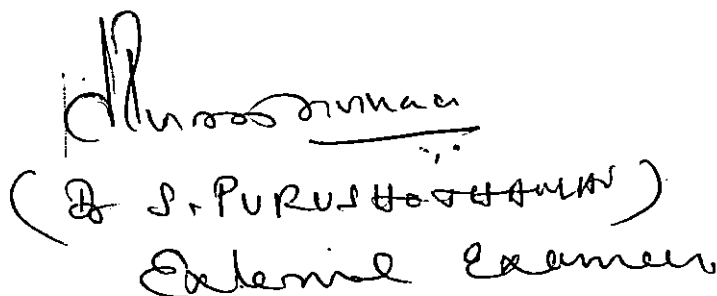 (Dr S. PURUSHOTHAMAN)
External Examiner